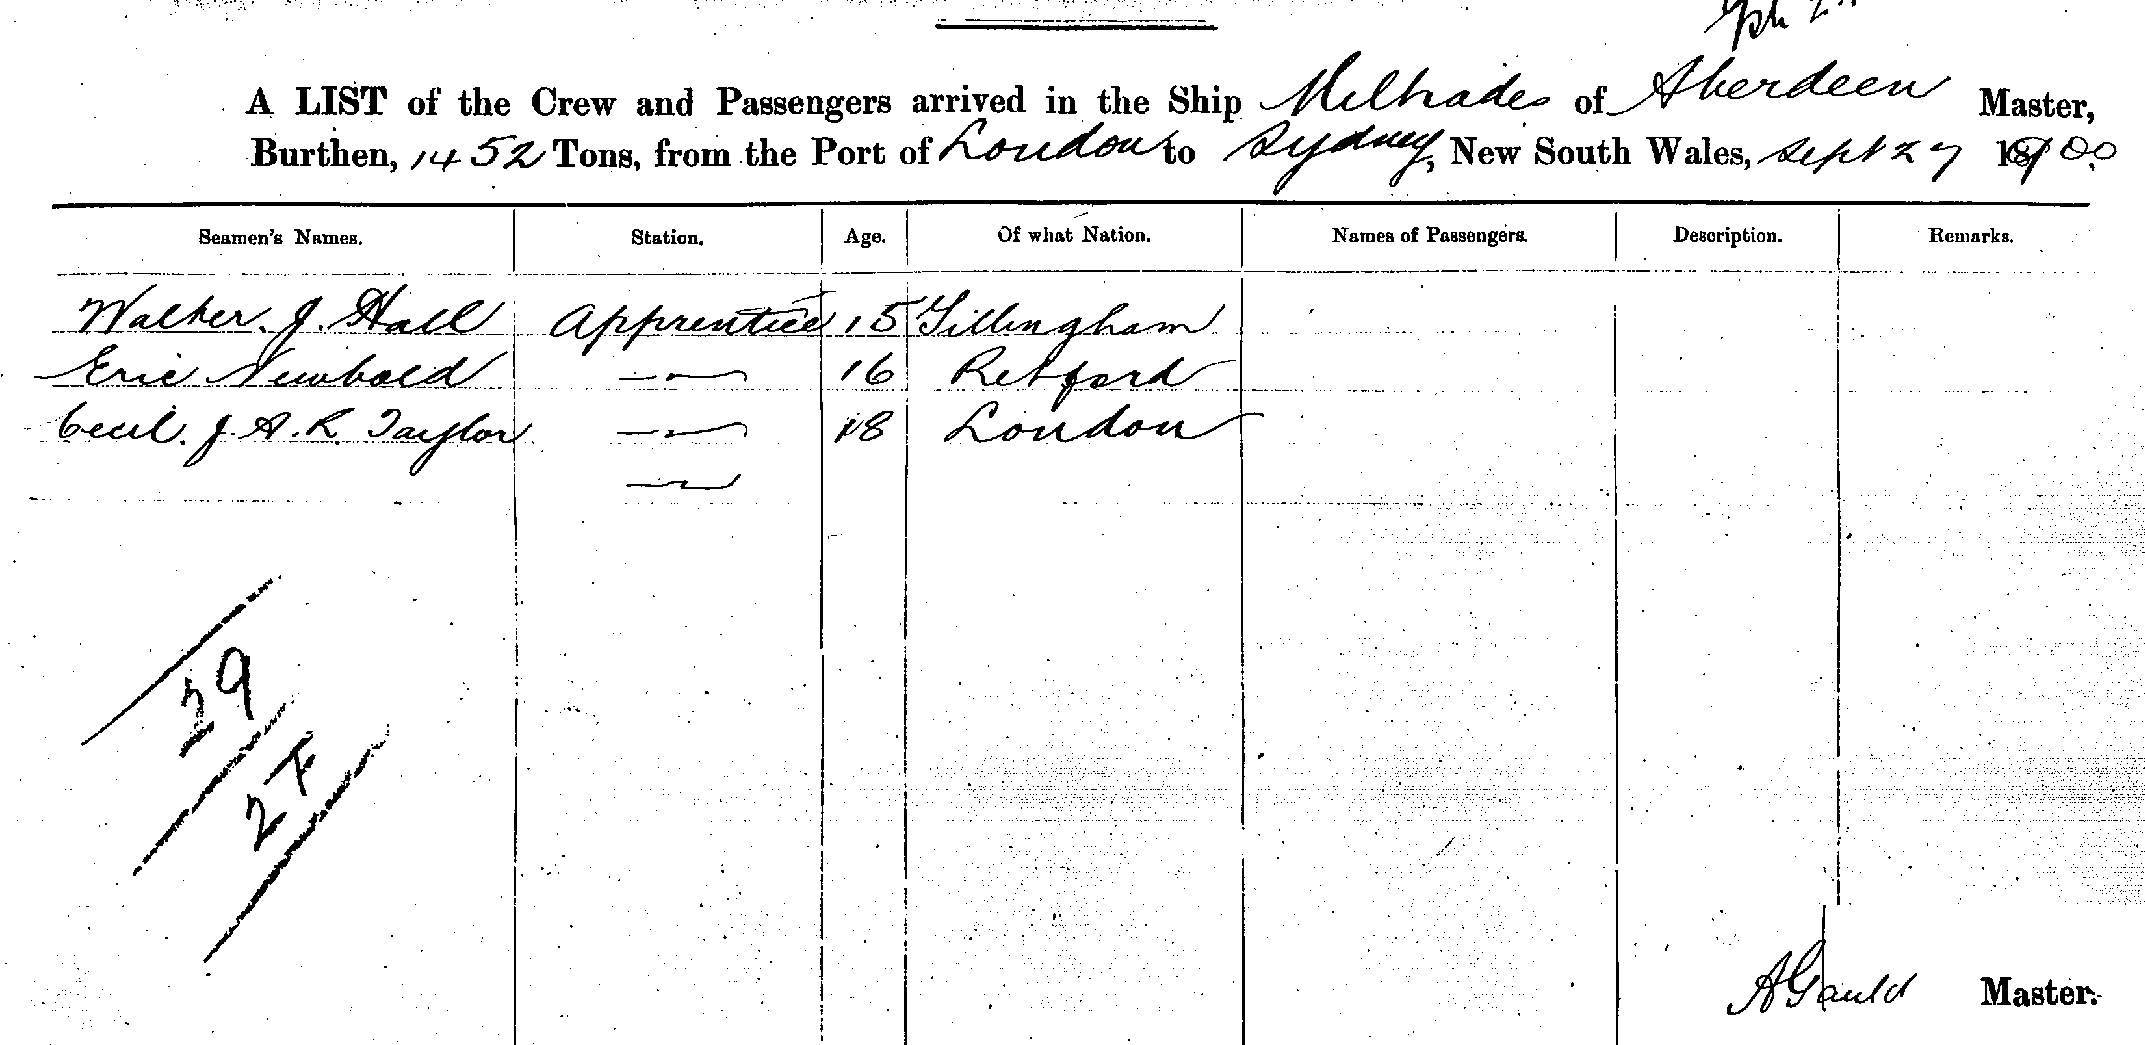 A LIST of the Crew and Passengers arrived in the Ship Miltiades of Aberdeen Master,
Burthen, 1452 Tons, from the Port of London to Sydney, New South Wales, Sept 27 1900.
Seamen's Names. Station. Age. Of what Nation. Names of Passengers. Description. Remarks.
Walter. J. Hall Apprentice 15 Gillingham
Eric Newbold —〃— 16 Retford
Cecil. J A. R. Taylor —〃— 18 London
—〃—
29
27
A Gauld Master.